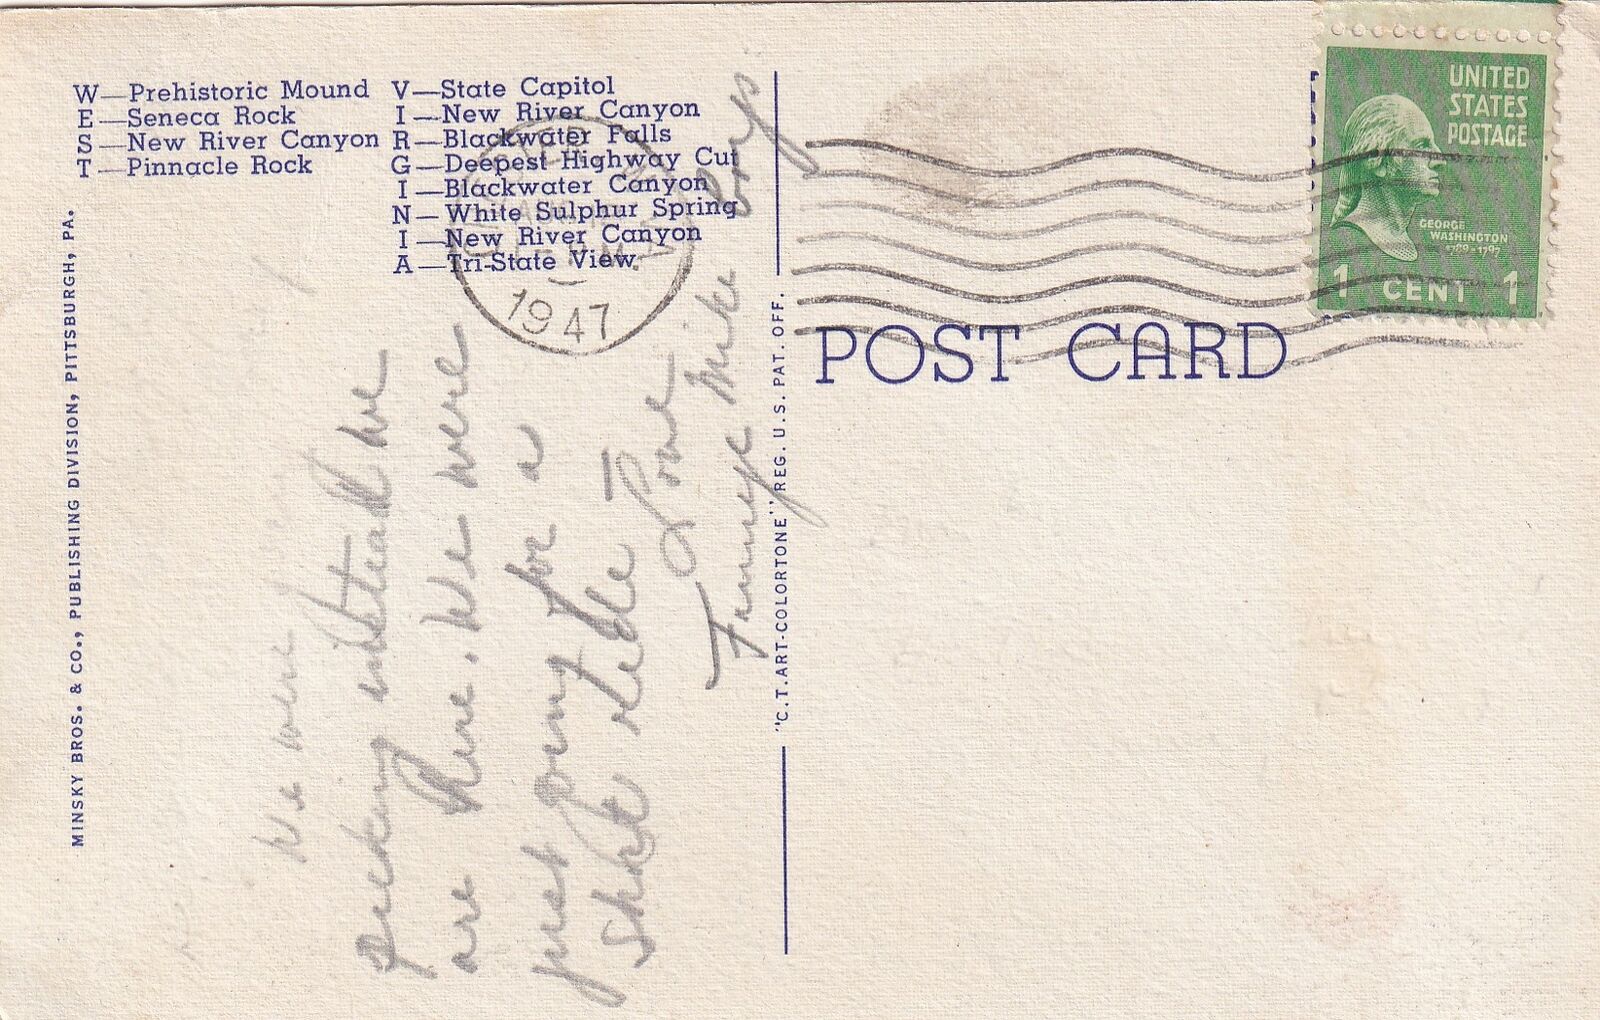 W—Prehistoric Mound
E—Seneca Rock
S—New River Canyon
T—Pinnacle Rock
V—State Capitol
I—New River Canyon
R—Blackwater Falls
G—Deepest Highway Cut
I—Blackwater Canyon
N—White Sulphur Spring
I—New River Canyon
A—Tri-State View
1947
UNITED
STATES
POSTAGE
GEORGE
WASHINGTON
1789-1797
1 CENT 1
POST CARD
MINSKY BROS. & CO., PUBLISHING DIVISION, PITTSBURGH, PA.
"C.T. ART-COLORTONE" REG. U.S. PAT. OFF.
We were
instead we
are here. We were
just going for a
short ride
Love
Mike boys